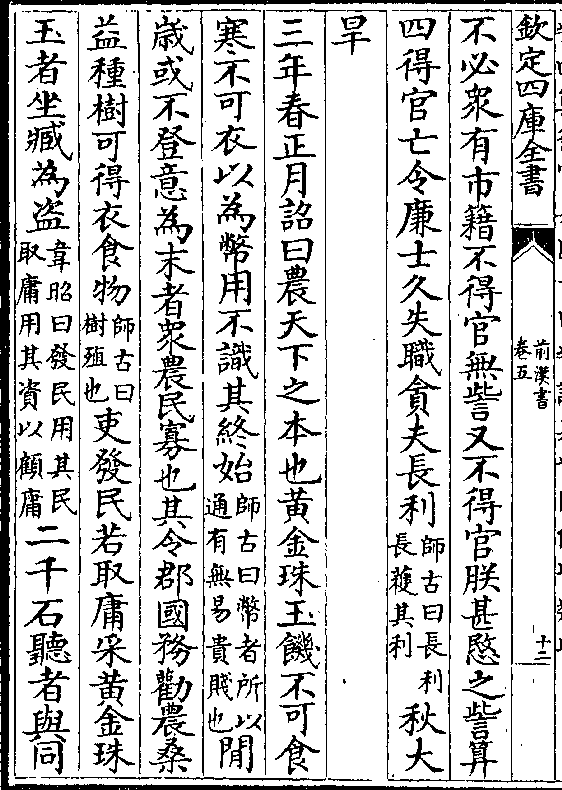 欽定四庫全書
前漢書
卷五
十二
不必衆有市籍不得官無訾又不得官朕甚愍之訾算
四得官亡令廉士久失職貪夫長利師古曰長利長穫其利秋大
旱
三年春正月詔曰農天下之本也黄金珠玉饑不可食
寒不可衣以為幣用不識其終始師古曰幣者所以通有無易貴賤也閒
歳或不登意為末者衆農民寡也其令郡國務勸農桑
益種樹可得衣食物師古曰樹殖也吏發民若取庸采黄金珠
玉者坐臧為盗韋昭曰發民用其民取庸用其資以顧庸二千石聽者與同